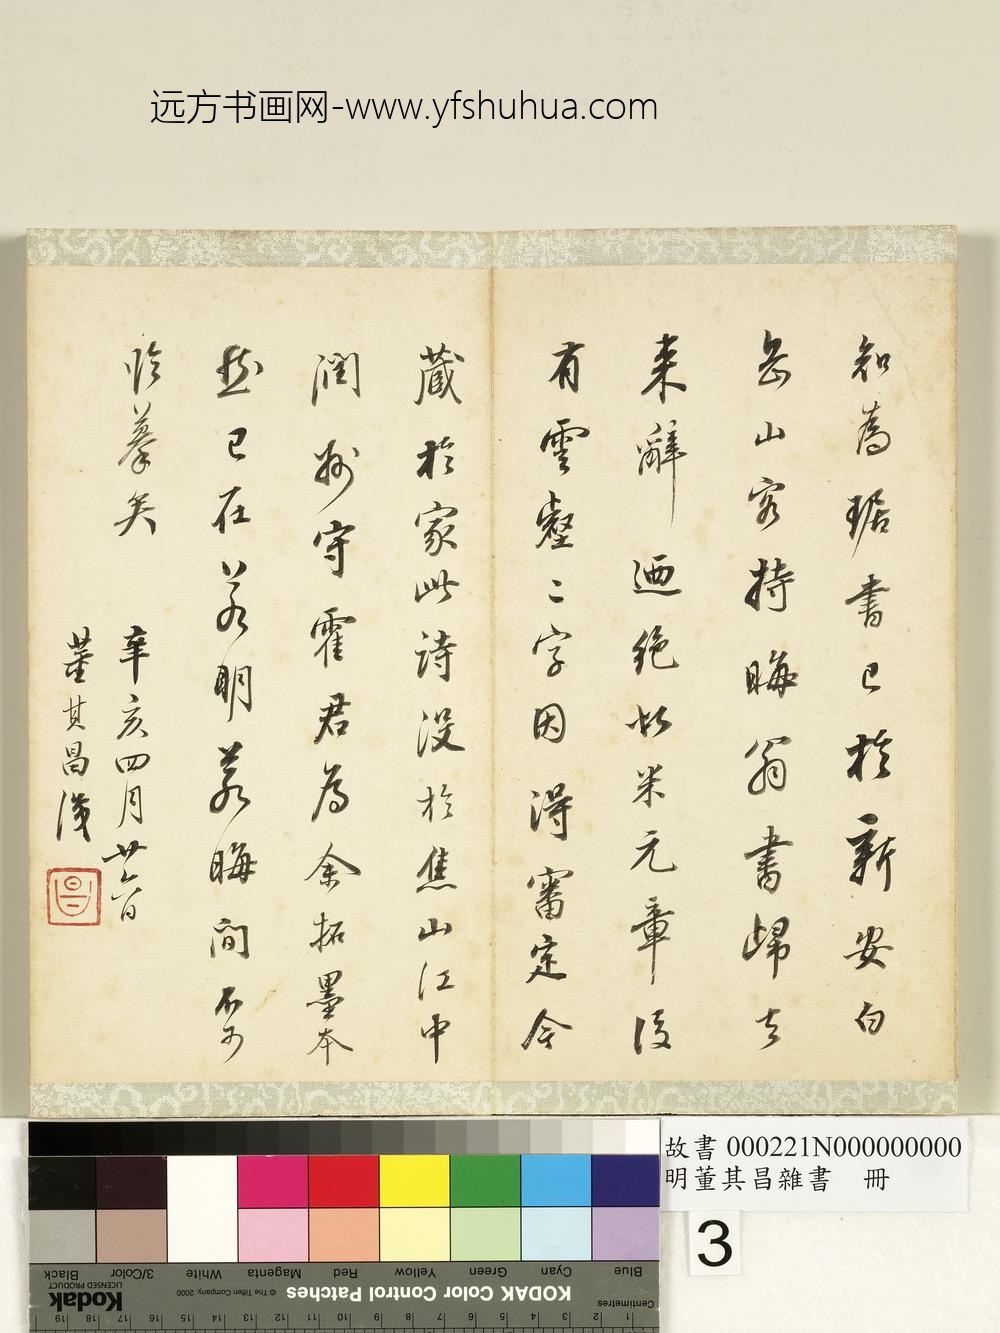 远方书画网-www.yfshuhua.com
知為琚書已於新安白
岳山家持晦翁書歸去
来辭迺絶似米元章後
有雲壑二字因得審定今
藏於家此詩没於焦山江中
潤州守霍君為余拓墨本
然已在若明若晦間不可
臨摹矣
辛亥四月廿六日
董其昌識
故書 000221N000000000
明董其昌雜書 冊
3
Blue
Cyan
Green
Yellow
Red
Magenta
White
3/Color
Black
Centimetres
KODAK Color Control Patches
© The Tiffen Company, 2000
Kodak
LICENSED PRODUCT
1 2 3 4 5 6 7 8 9 10 11 12 13 14 15 16 17 18 19